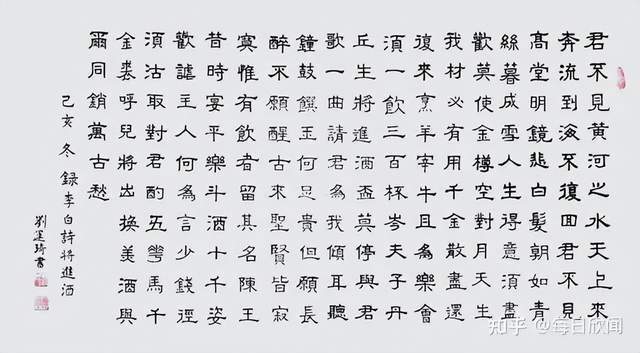 君不見黃河之水天上來
奔流到海不復回君不見
高堂明鏡悲白髮朝如青
絲暮成雪人生得意須盡
歡莫使金樽空對月天生
我材必有用千金散盡還
復來烹羊宰牛且為樂會
須一飲三百杯岑夫子丹
丘生將進酒盃莫停與君
歌一曲請君為我傾耳聽
鐘鼓饌玉何足貴但願長
醉不願醒古來聖賢皆寂
寞惟有飲者留其名陳王
昔時宴平樂斗酒十千姿
歡謔主人何為言少錢徑
須沽取對君酌五花馬千
金裘呼兒將出換美酒與
爾同銷萬古愁
己亥冬錄李白詩將進酒
劉琦書
知乎 @每日欣闻